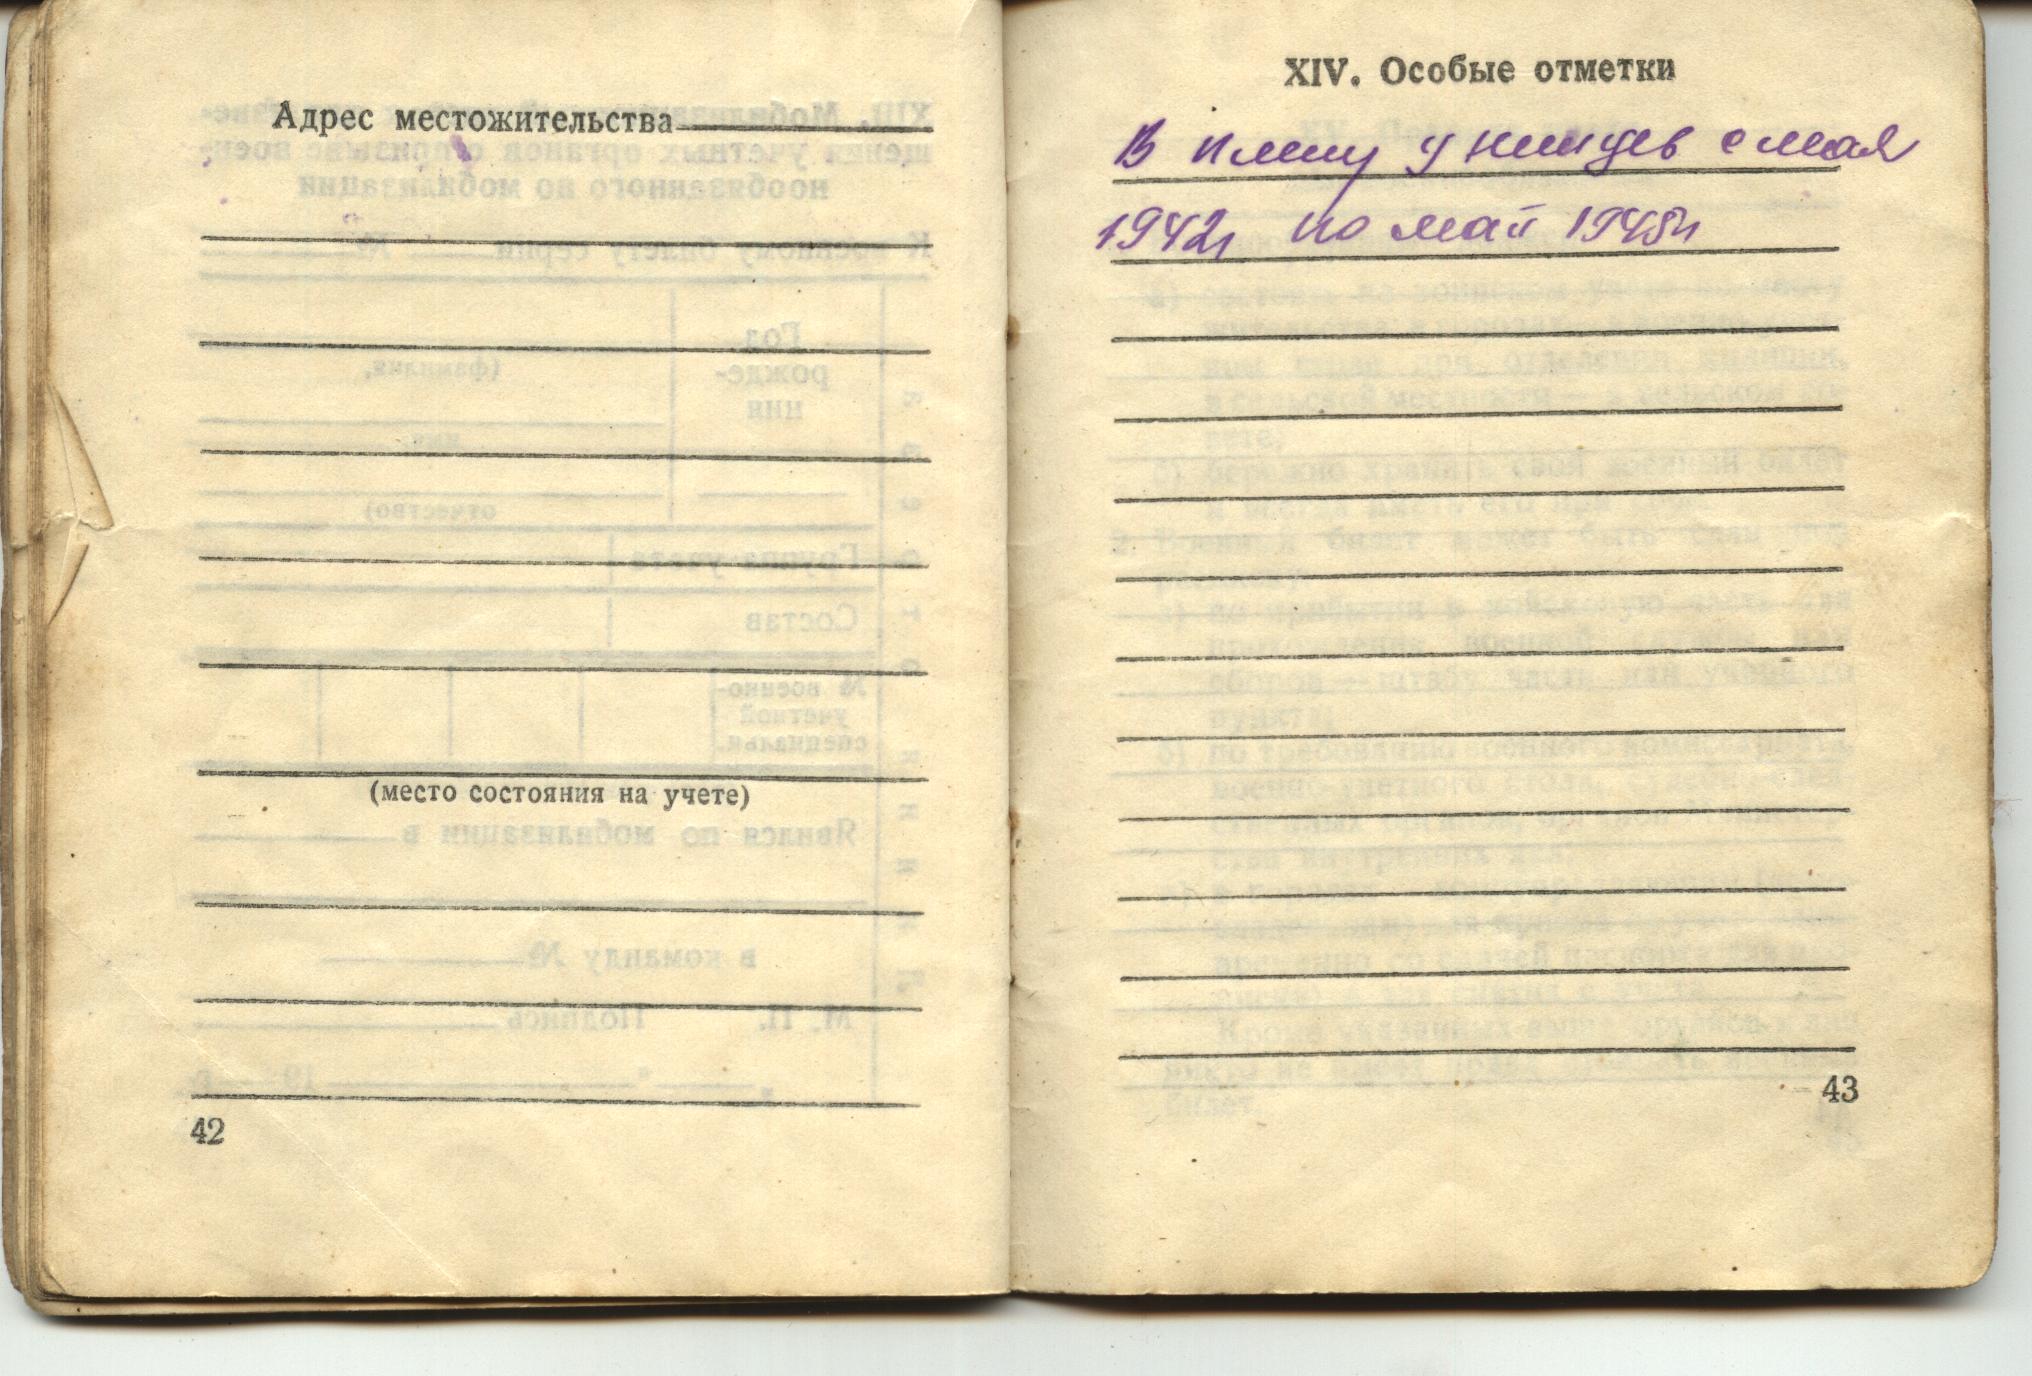 Адрес местожительства
(место состояния на учете)
42
XIV. Особые отметки
В плену у немцев с мая
1942г по май 1945г
43